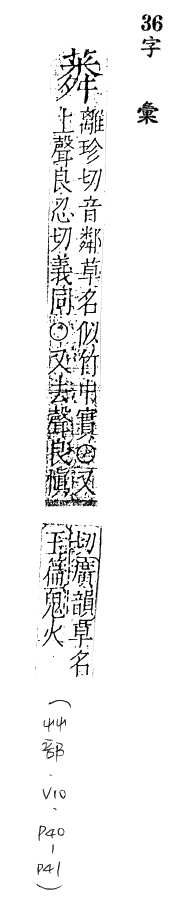 36
字彙
離珍切音鄰草名似竹中實〇又
上聲良忍切義同〇又去聲良愼
切廣韻草名
鬼火
(艸部.V10.P40-P41)